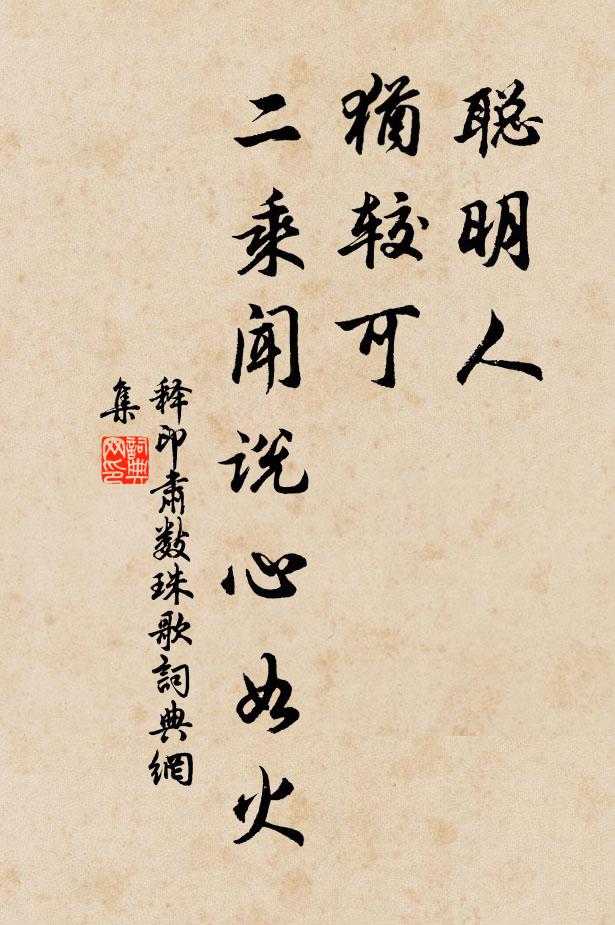 聪明人
犹较可
二乘闻说心如火
释印肃数珠歌詞典網
集
詞典
网印